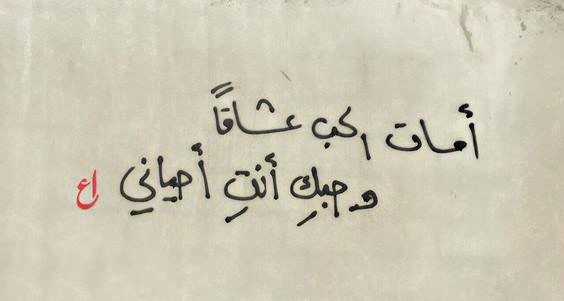 أمات الحب عشاقًا
وحبكِ أنتِ أحياني
اع